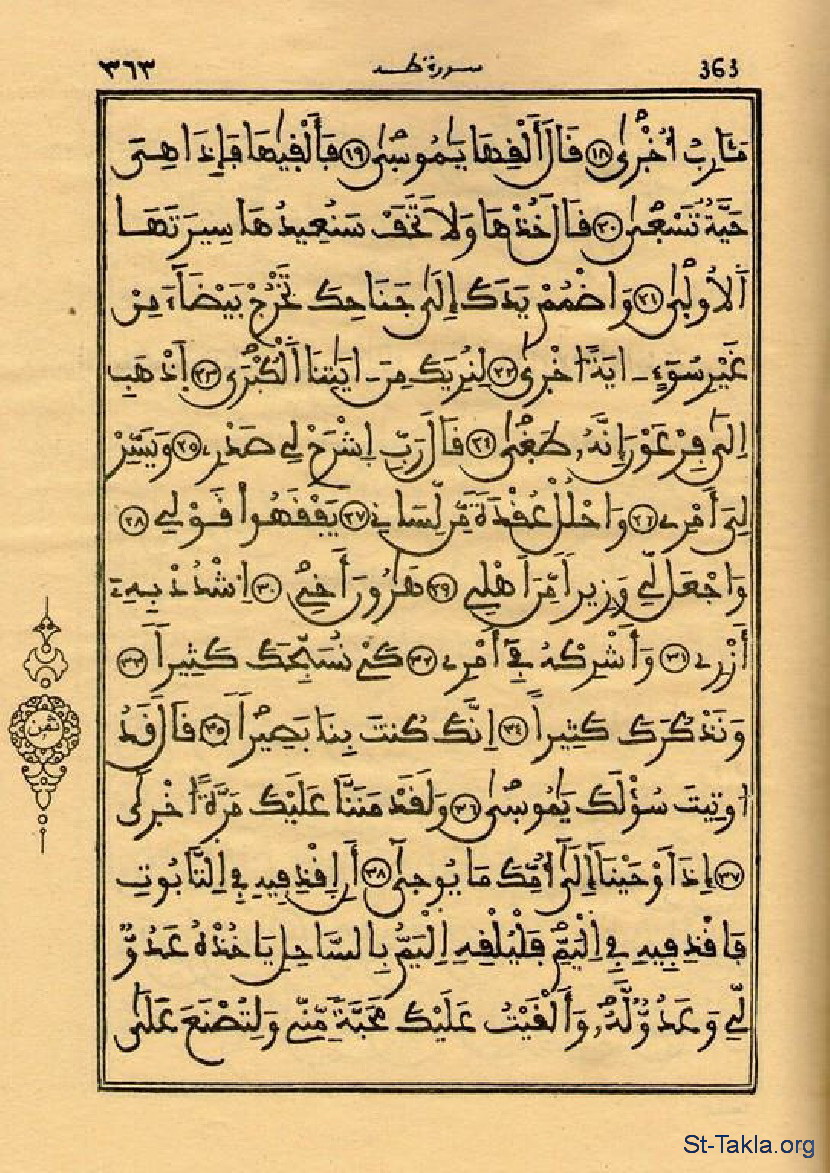 ٣٦٣ سورة طه 363
مَـَٔارِبُ أُخْرٰى ١٨ قَالَ أَلْقِهَا يَٰمُوسٰى ١٩ فَأَلْقٰيهَا فَإِذَا هِىَ
حَيَّةٌ تَسْعٰى ٢٠ قَالَ خُذْهَا وَلَا تَخَفْ سَنُعِيدُهَا سِيرَتَهَا
اَلُاولٰى ٢١ وَاضْمُمْ يَدَكَ إِلَىٰ جَنَاحِكَ تَخْرُجْ بَيْضَآءَ مِنْ
غَيْرِ سُوٓءٍ ـ ايَةً اُخْرٰى ٢٢ لِنُرِيَكَ مِنَ ـ ايَٰتِنَا اَلْكُبْرَى ٢٣ اَذْهَبِ
اِلَىٰ فِرْعَوْنَ إِنَّهُۥ طَغٰى ٢٤ قَالَ رَبِّ اِشْرَحْ لِے صَدْرِے ٢٥ وَيَسِّرْ
لِىَ أَمْرِے ٢٦ وَاحْلُلْ عُقْدَةً مِّن لِّسَانِے ٢٧ يَفْقَهُوا قَوْلِے ٢٨
وَاجْعَل لِّے وَزِيراً مِّنَ اَهْلِے ٢٩ هَٰرُونَ أَخِے ٣٠ اِشْدُدْ بِهِۦٓ
أَزْرِے ٣١ وَأَشْرِكْهُ فِےٓ أَمْرِے ٣٢ كَےْ نُسَبِّحَكَ كَثِيراً ٣٣
وَنَذْكُرَكَ كَثِيراً ٣٤ اِنَّكَ كُنتَ بِنَا بَصِيراً ٣٥ قَالَ قَدُ
اوتِيتَ سُؤْلَكَ يَٰمُوسٰى ٣٦ وَلَقَدْ مَنَنَّا عَلَيْكَ مَرَّةً اُخْرٰىٓ
٣٧ إِذَ اَوْحَيْنَآ إِلَىٰٓ أُمِّكَ مَا يُوحٰىٓ ٣٨ أَنِ اِقْذِفِيهِ فِے اِلتَّابُوتِ
فَاقْذِفِيهِ فِے اِلْيَمِّ فَلْيُلْقِهِ اِلْيَمُّ بِالسَّاحِلِ يَاخُذْهُ عَدُوٌّ
لِّے وَعَدُوٌّ لَّهُۥ وَأَلْقَيْتُ عَلَيْكَ مَحَبَّةً مِّنِّے وَلِتُصْنَعَ عَلَىٰ
ثمن
St-Takla.org